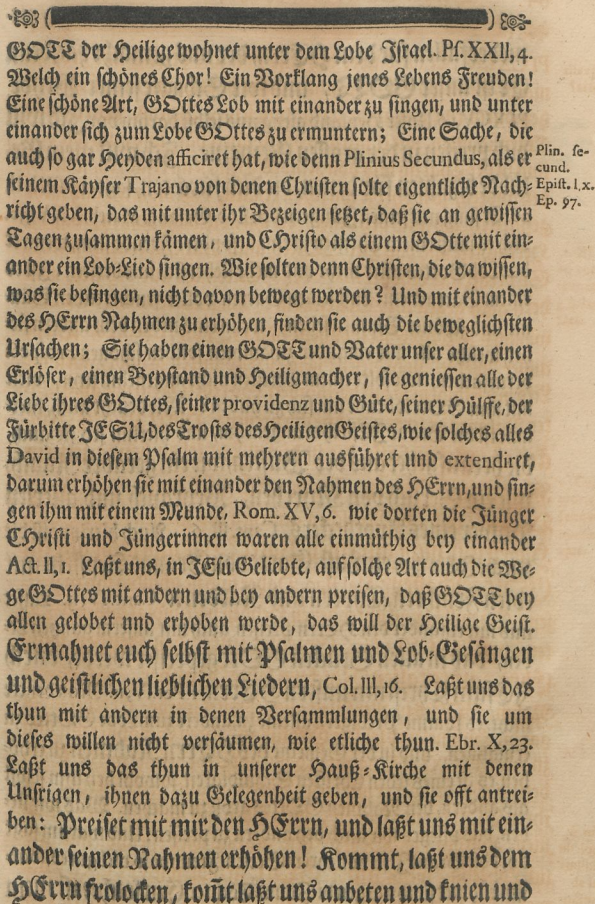 GOTT der Heilige wohnet unter dem Lobe Israel. Ps. XXII, 4.
Welch ein schönes Chor! Ein Vorklang jenes Lebens Freuden!
Eine schöne Art, GOttes Lob mit einander zu singen, und unter
einander sich zum Lobe GOttes zu ermuntern; Eine Sache, die
auch so gar Heyden afficiret hat, wie denn Plinius Secundus, als er
seinem Käyser Trajano von denen Christen solte eigentliche Nach-
richt geben, das mit unter ihr Bezeigen setzet, daß sie an gewissen
Tagen zusammen kämen, und CHristo als einem GOtte mit ein-
ander ein Lob-Lied singen. Wie solten denn Christen, die da wissen,
was sie besingen, nicht davon bewegt werden? Und mit einander
des HErrn Nahmen zu erhöhen, finden sie auch die beweglichsten
Ursachen; Sie haben einen GOTT und Vater unser aller, einen
Erlöser, einen Beystand und Heiligmacher, sie geniessen alle der
Liebe ihres GOttes, seiner providenz und Güte, seiner Hülffe, der
Fürbitte JESU, des Trosts des Heiligen Geistes, wie solches alles
David in diesem Psalm mit mehrern ausführet und extendiret,
darum erhöhen sie mit einander den Nahmen des HErrn, und sin-
gen ihm mit einem Munde, Rom. XV, 6. wie dorten die Jünger
CHristi und Jüngerinnen waren alle einmüthig bey einander
Act. II, 1. Laßt uns, in JEsu Geliebte, auf solche Art auch die We-
ge GOttes mit andern und bey andern preisen, daß GOTT bey
allen gelobet und erhoben werde, das will der Heilige Geist.
Ermahnet euch selbst mit Psalmen und Lob-Gesängen
und geistlichen lieblichen Liedern, Col. III, 16. Laßt uns das
thun mit andern in denen Versammlungen, und sie um
dieses willen nicht versäumen, wie etliche thun. Ebr. X, 23.
Laßt uns das thun in unserer Hauß-Kirche mit denen
Unsrigen, ihnen dazu Gelegenheit geben, und sie offt antrei-
ben: Preiset mit mir den HErrn, und laßt uns mit ein-
ander seinen Nahmen erhöhen! Kommt, laßt uns dem
HErrn frolocken, kom̃t laßt uns anbeten und knien und
Plin. se-
cund.
Epist. l. x.
Ep. 97.